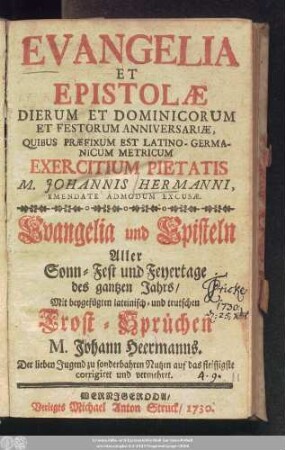 EVANGELIA
ET
EPISTOLÆ
DIERUM ET DOMINICORUM
ET FESTORUM ANNIVERSARIÆ,
QUIBUS PRÆFIXUM EST LATINO-GERMA-
NICUM METRICUM
EXERCITIUM PIETATIS
M. JOHANNIS HERMANNI,
EMENDATE ADMODUM EXCUSÆ.
Evangelia und Episteln
Aller
Sonn- Fest und Feyertage
des gantzen Jahrs/
Mit beygefügten lateinisch- und teutschen
Trost-Sprüchen
M. Johann Heermanns.
Der lieben Jugend zu sonderbahren Nutzen auf das fleissigste
corrigiret und vermehret.
1730.
4.9.
WERNIGERODA/
Verlegts Michael Anton Struck/ 1730.